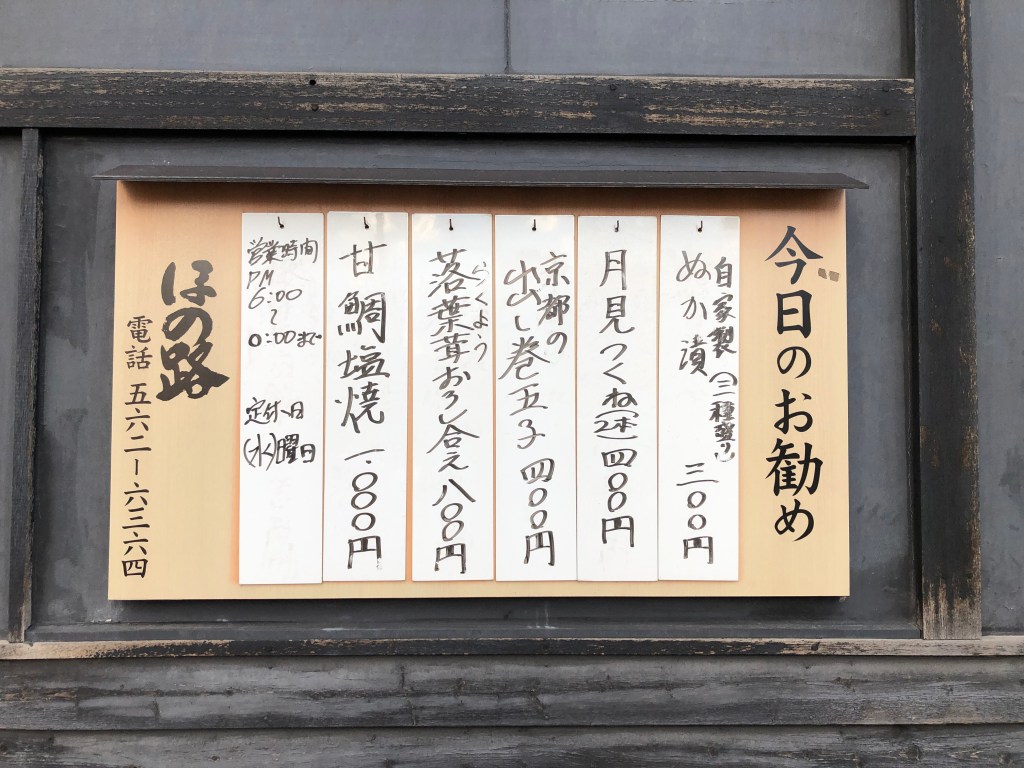 今日のお勧め
自家製(三種盛り)
ぬか漬 三〇〇円
月見つくね(2本)四〇〇円
京都の
出し巻玉子 四〇〇円
らくよう
落葉茸おろし合え 八〇〇円
甘鯛塩焼 一.〇〇〇円
営業時間
PM
6:00
〜
0:00まで
定休日
(水)曜日
ほの路
電話 五六二ー六三六四